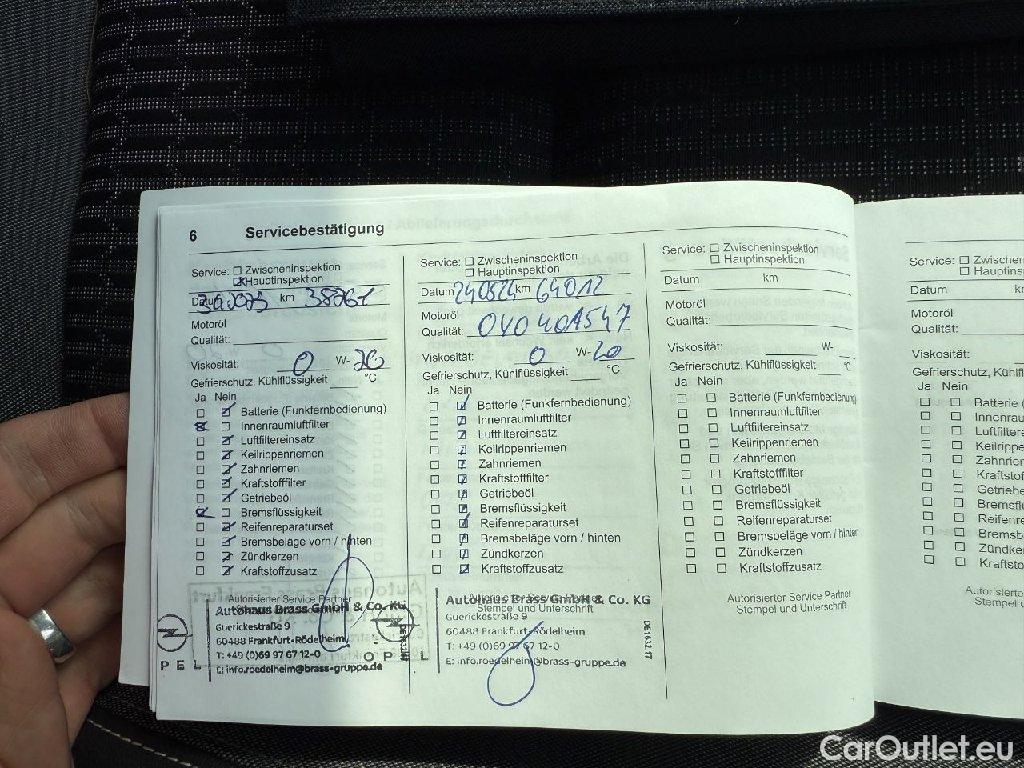 6 Servicebestätigung
Service: Zwischeninspektion
Hauptinspektion
km 38761
Motoröl
Qualität:
Viskosität: 0 W- 20
Gefrierschutz, Kühlflüssigkeit °C
Ja Nein
Batterie (Funkfernbedienung)
Innenraumluftfilter
Luftfiltereinsatz
Keilrippenriemen
Zahnriemen
Kraftstofffilter
Getriebeöl
Bremsflüssigkeit
Reifenreparaturset
Bremsbeläge vorn / hinten
Zündkerzen
Kraftstoffzusatz
Autorisierter Service Partner
Autohaus Brass GmbH & Co. KG
Guerickestraße 9
60488 Frankfurt-Rödelheim
T: +49 (0)69 97 67 12-0
E: info.roedelheim@brass-gruppe.de
OPEL
Service: Zwischeninspektion
Hauptinspektion
Datum 240824 km 64012
Motoröl
Qualität 0V0401547
Viskosität: 0 W- 20
Gefrierschutz, Kühlflüssigkeit °C
Ja Nein
Batterie (Funkfernbedienung)
Innenraumluftfilter
Luftfiltereinsatz
Keilrippenriemen
Zahnriemen
Kraftstoffilter
Getriebeöl
Bremsflüssigkeit
Reifenreparaturset
Bremsbeläge vorn / hinten
Zündkerzen
Kraftstoffzusatz
Autohaus Brass GmbH & Co. KG
Stempel und Unterschrift
Guerickestraße 9
60488 Frankfurt-Rödelheim
T: +49 (0)69 97 67 12-0
E: info.roedelheim@brass-gruppe.de
Service: Zwischeninspektion
Hauptinspektion
Datum km
Motoröl
Qualität:
Viskosität: W-
Gefrierschutz, Kühlflüssigkeit: °C
Ja Nein
Batterie (Funkfernbedienung
Innenraumluftfilter
Luftfiltereinsatz
Keilrippenriemen
Zahnriemen
Kraftstofffilter
Getriebeöl
Bremsflüssigkeit
Reifenreparaturset
Bremsbeläge vorn / hinten
Zündkerzen
Kraftstoffzusatz
Autorisierter Service Partner
Stempel und Unterschrift
Service: Zwischenin
Hauptins
Datum km
Motoröl
Qualität:
Viskosität:
Gefrierschutz, Kühlfl
Ja Nein
Batterie
Innenrau
Luftfilter
Keilrippe
Zahnrie
Kraftsto
Getriebe
Bremsflü
Reifenre
Bremsb
Zündke
Kraftsto
Autorisierte
Stempel u
CarOutlet.eu